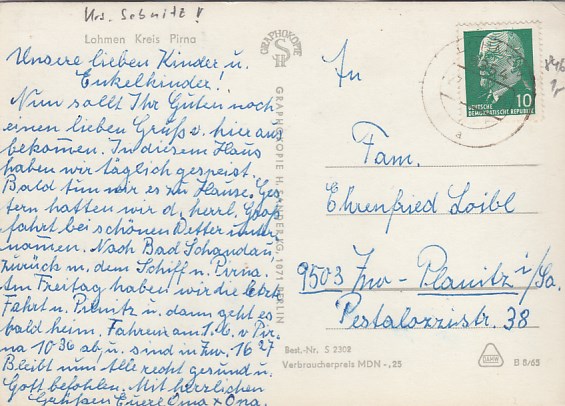 Krs. Sebnitz!
Lohmen Kreis Pirna
Unsere lieben Kinder u.
Enkelkinder!
Nun sollt Ihr Guten noch
einen lieben Gruß v. hier aus
bekommen. In diesem Haus
haben wir täglich gespeist.
Bald tun wir es zu Hause. Ges-
tern hatten wir d. herrl. Groß
fahrt bei schönen Wetter
nommen. Nach Bad Schandau,
zurück m. dem Schiff n. Pirna.
Am Freitag haben wir die letzte
Fahrt n. u. dann geht es
bald heim. Fahren am 1.6. v Pir-
na 10 36 ab, u. sind in Zw. 16 27
Bleibt nun alle recht gesund u.
Gott befohlen. Mit herzlichen
Grüßen Euere Oma + Opa.
GRAPHOKOPIE
SH
GRAPHOKOPIE H. SANDER KG. 1071 BERLIN
10
DEUTSCHE
DEMOKRATISCHE REPUBLIK
An
Fam.
Ehrenfried Loibl
9503 Zw-Planitz i/Sa.
Pestalozzistr. 38
Best.-Nr. S 2308
Verbraucherpreis MDN -,25
DAMW
B 8/65